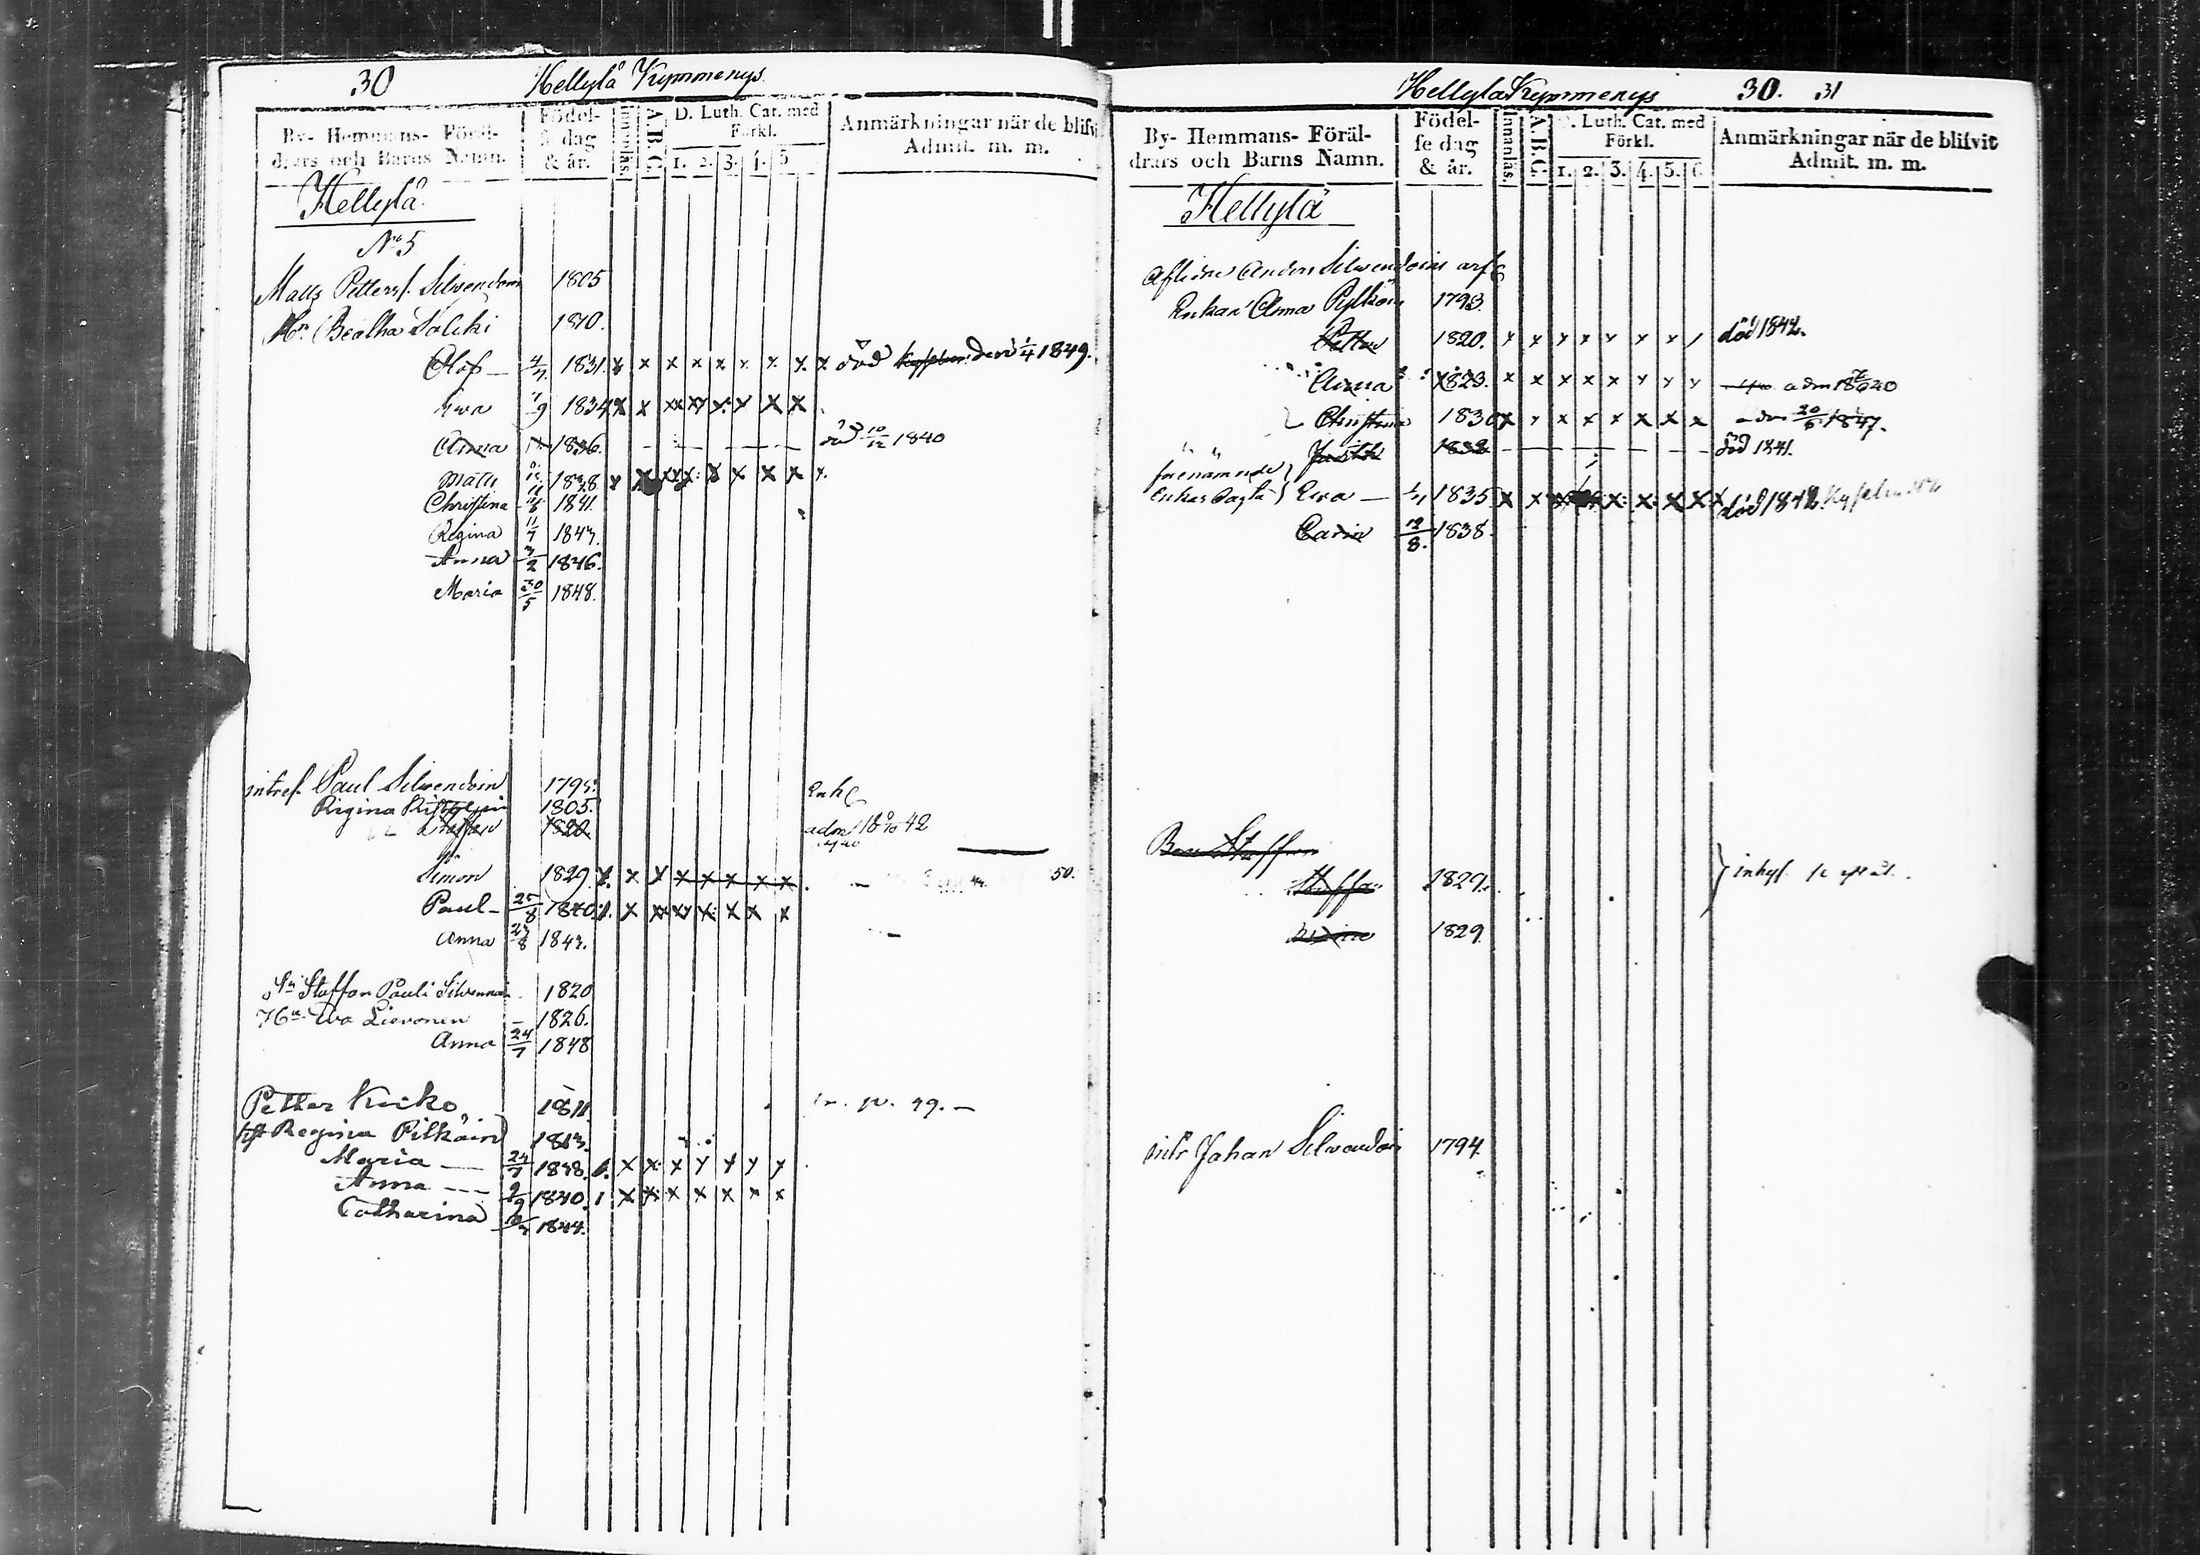 30 Hellylä Kymmenys.
By- Hemmans- Föräl-
drars och Barns Namn.
Födel-
se dag
& år.
Innanläs.
A.B.C.
D. Luth. Cat. med
Förkl.
1. 2. 3. 4. 5
Anmärkningar när de blifvi
Admit. m. m.
Hellylä.
No 5
Matts Petterss. Silvendoin 1805
Hu Beatha 1810.
Olof — 4/7 1831. x x x x x x x x x död den 1/4 1849.
Ewa 1/9 1834 x x xx xx x x x x
Anna 1836. död 10/12 1840
Matts 1838 x x xx x x x x x
Christina 1841.
Regina 11/7 1843.
Anna 3/2 1846.
Maria 30/5 1848.
Paul Silvendoin 1795. Enkl
Regina 1805.
Staffan 1820. adm 18 42
Simon 1829. x. x x x x x x x 50.
Paul — 25/8 1840. x xx xx x x x x
Anna 23/8 1843.
Sn Staffan Pauli Silvennoin 1820
Hu Eva Lievonen — 1826.
Anna 24/7 1848
Petter Kucko 1811 49. —
Regina Pilkäin 1813.
Maria — 24/7 1838. x x x y y y y
Anna — 9/9 1840. 1 x x x x x x x
Catharina 1844.
Hellylä Kymmenys 30. 31
By- Hemmans- Föräl-
drars och Barns Namn.
Födel-
se dag
& år.
Innanläs.
A.B.C.
D. Luth. Cat. med
Förkl.
1. 2. 3. 4. 5. 6
Anmärkningar när de blifvit
Admit. m. m.
Hellylä
Aflidne Anders Silvendoins arf
Enkan Anna Pylköin 1793.
Petter 1820. x x x x x x x / död 1842.
Anna 1823. x x x x x x x x adm 40
Christina 1830 x x x x x x x x adm 20/6 1847.
1832 — — — — — död 1841.
förenämnde
Enkas Ewa — 1/11 1835 x x x x x x x död 1842.
Carin 12/8. 1838.
Staffan
Staffan 1829. } inhys.
1829.
Johan Silvendoin 1794.